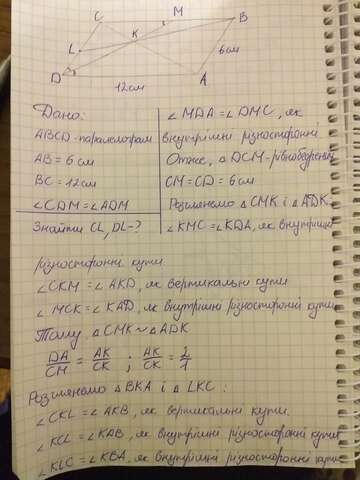 C M B
K
L
6см
D 12см A
Дано:
ABCD-паралелограм
AB = 6 см
BC = 12 см
∠CDM = ∠ADM
Знайти CL, DL-?
∠MDA = ∠DMC, як
внутрішні різносторонні
Отже, △DCM-рівнобедрений
CM = CD = 6 см
Розглянемо △CMK і △ADK.
∠KMC = ∠KDA, як внутрішні
різносторонні кути.
∠CKM = ∠AKD, як вертикальні кути
∠MCK = ∠KAD, як внутрішні різносторонні кути
Тому △CMK ~ △ADK
DA/CM = AK/CK ; AK/CK = 2/1
Розглянемо △BKA і △LKC:
∠CKL = ∠AKB, як вертикальні кути.
∠KCL = ∠KAB, як внутрішні різносторонні кути
∠KLC = ∠KBA, як внутрішні різносторонні кути